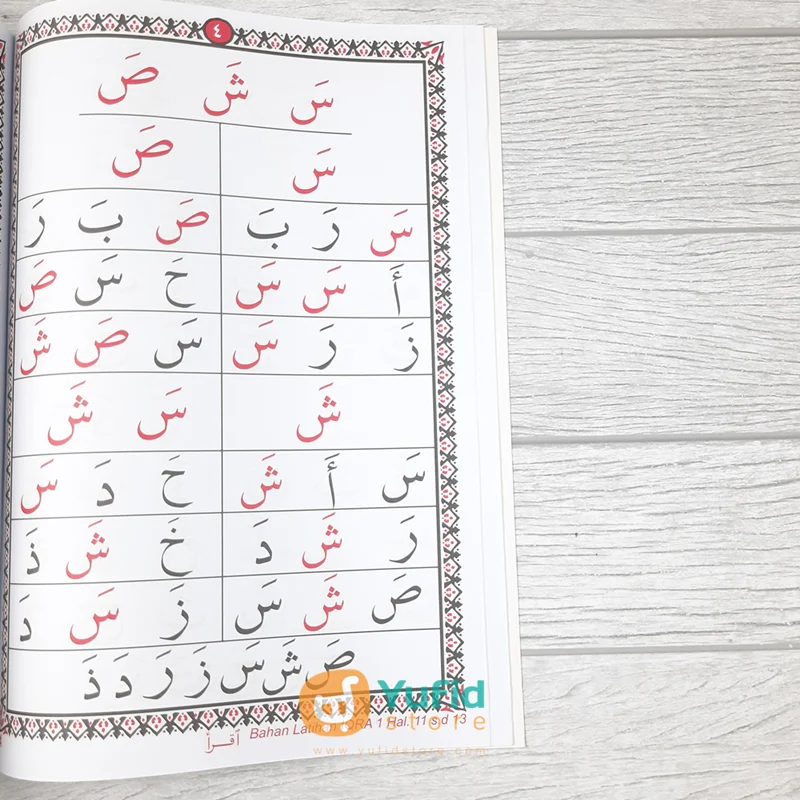 ٤
سَ شَ صَ
سَ صَ
سَ رَ بَ صَ بَ رَ
أَ سَ سَ حَ سَ صَ
زَ رَ سَ سَ صَ شَ
شَ سَ شَ
سَ أَ شَ حَ دَ سَ
رَ شَ دَ خَ شَ ذَ
صَ شَ سَ زَ سَ دَ
صَ شَ سَ زَ رَ دَ ذَ
Yufid
store
اقرأ Bahan IQRA 1 Hal. 11 s.d 13
www.yufidstore.com